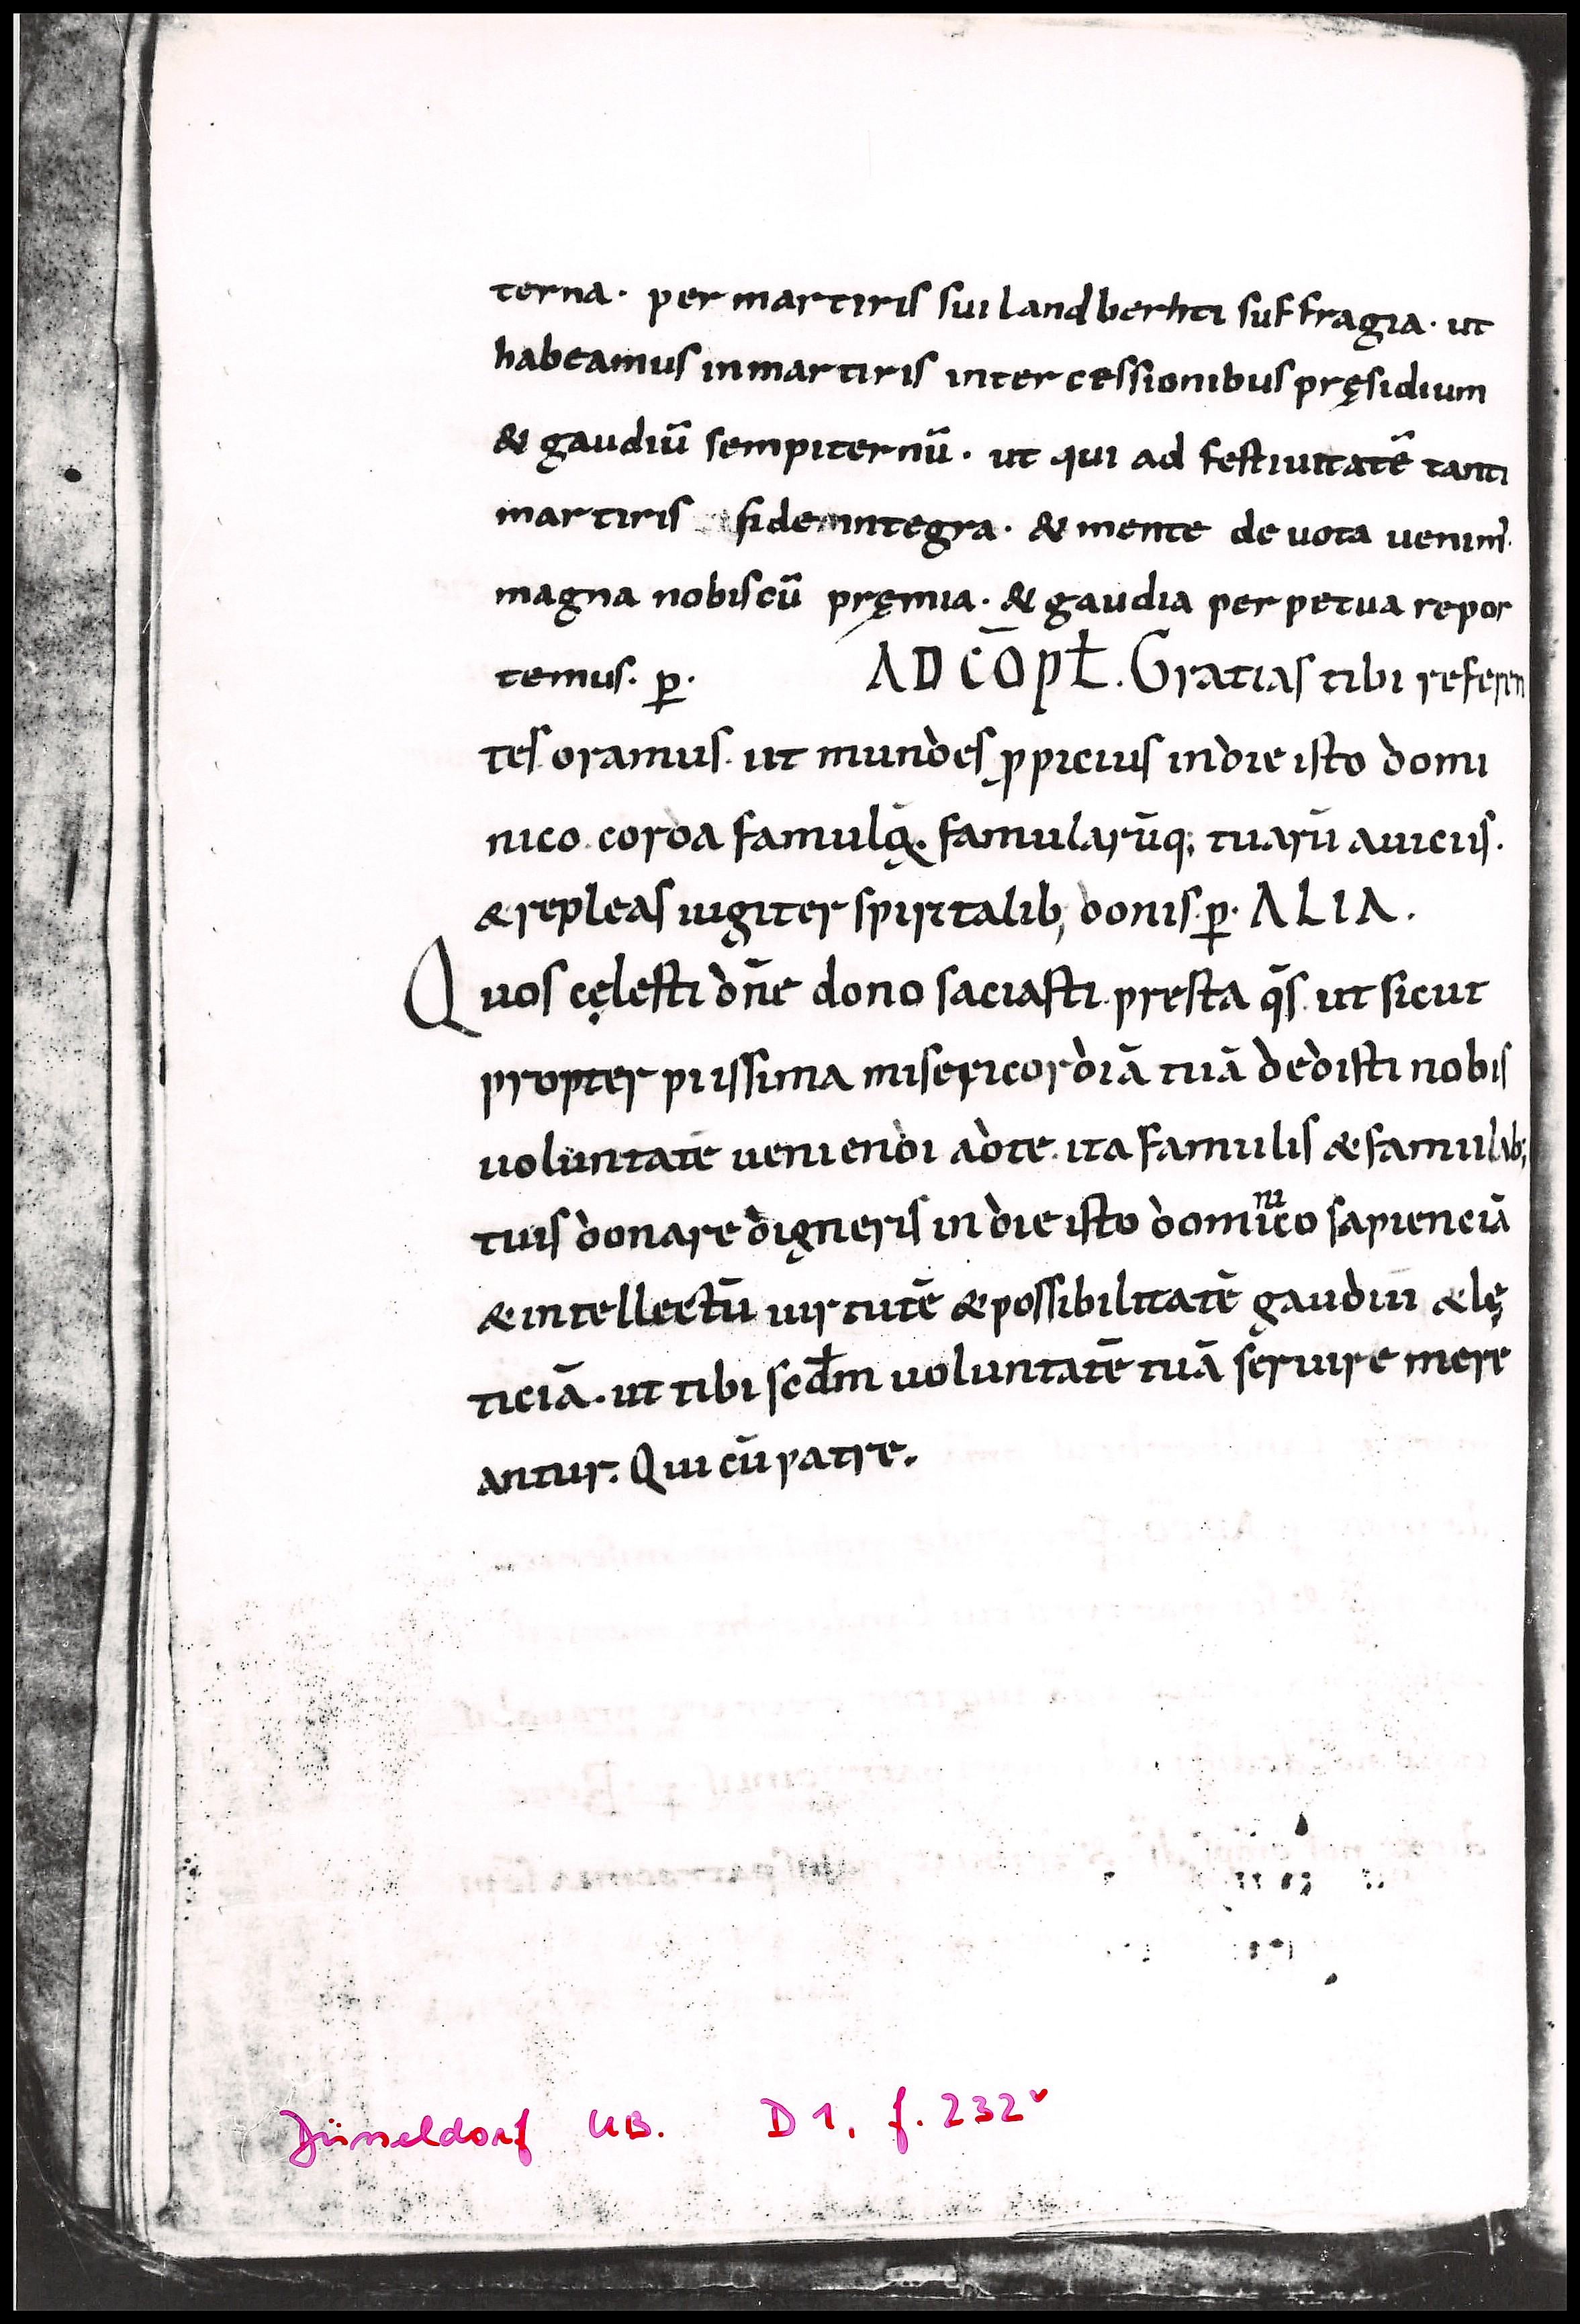 terna· per martiris sui landberhti suffragia· ut
habeamus inmartiris intercessionibus pręsidium
& gaudiū sempiternū· ut qui ad festiuitatē tanti
martiris fide integra· & mente deuota uenim̄·
magna nobiscū pręmia· & gaudia perpetua repor
temus· ꝑ· AD CŌPŁ. Gratias tibi referen
tes oramus· ut mundes ꝓpicius indie isto domi
nico corda famuloꝝ. famularūq; tuarū auiciis·
& repleas iugiter spiritalib; donis·ꝑ· ALIA.
Quos cęlesti dn̄e dono saciasti presta qs̄ ut sicut
propter piissima misericordiā tuā dedisti nobis
voluntatē ueniendi adte· ita famulis & famulab;
tuis donare digneris in die isto dominico sapienciā
& intellectū uirtutē & possibilitatē gaudiū & lę
ticiā· ut tibi scdm̄ uoluntatē tuā seruire mere
antur. Qui cū patre.
Düsseldorf UB. D 1, f. 232ᵛ